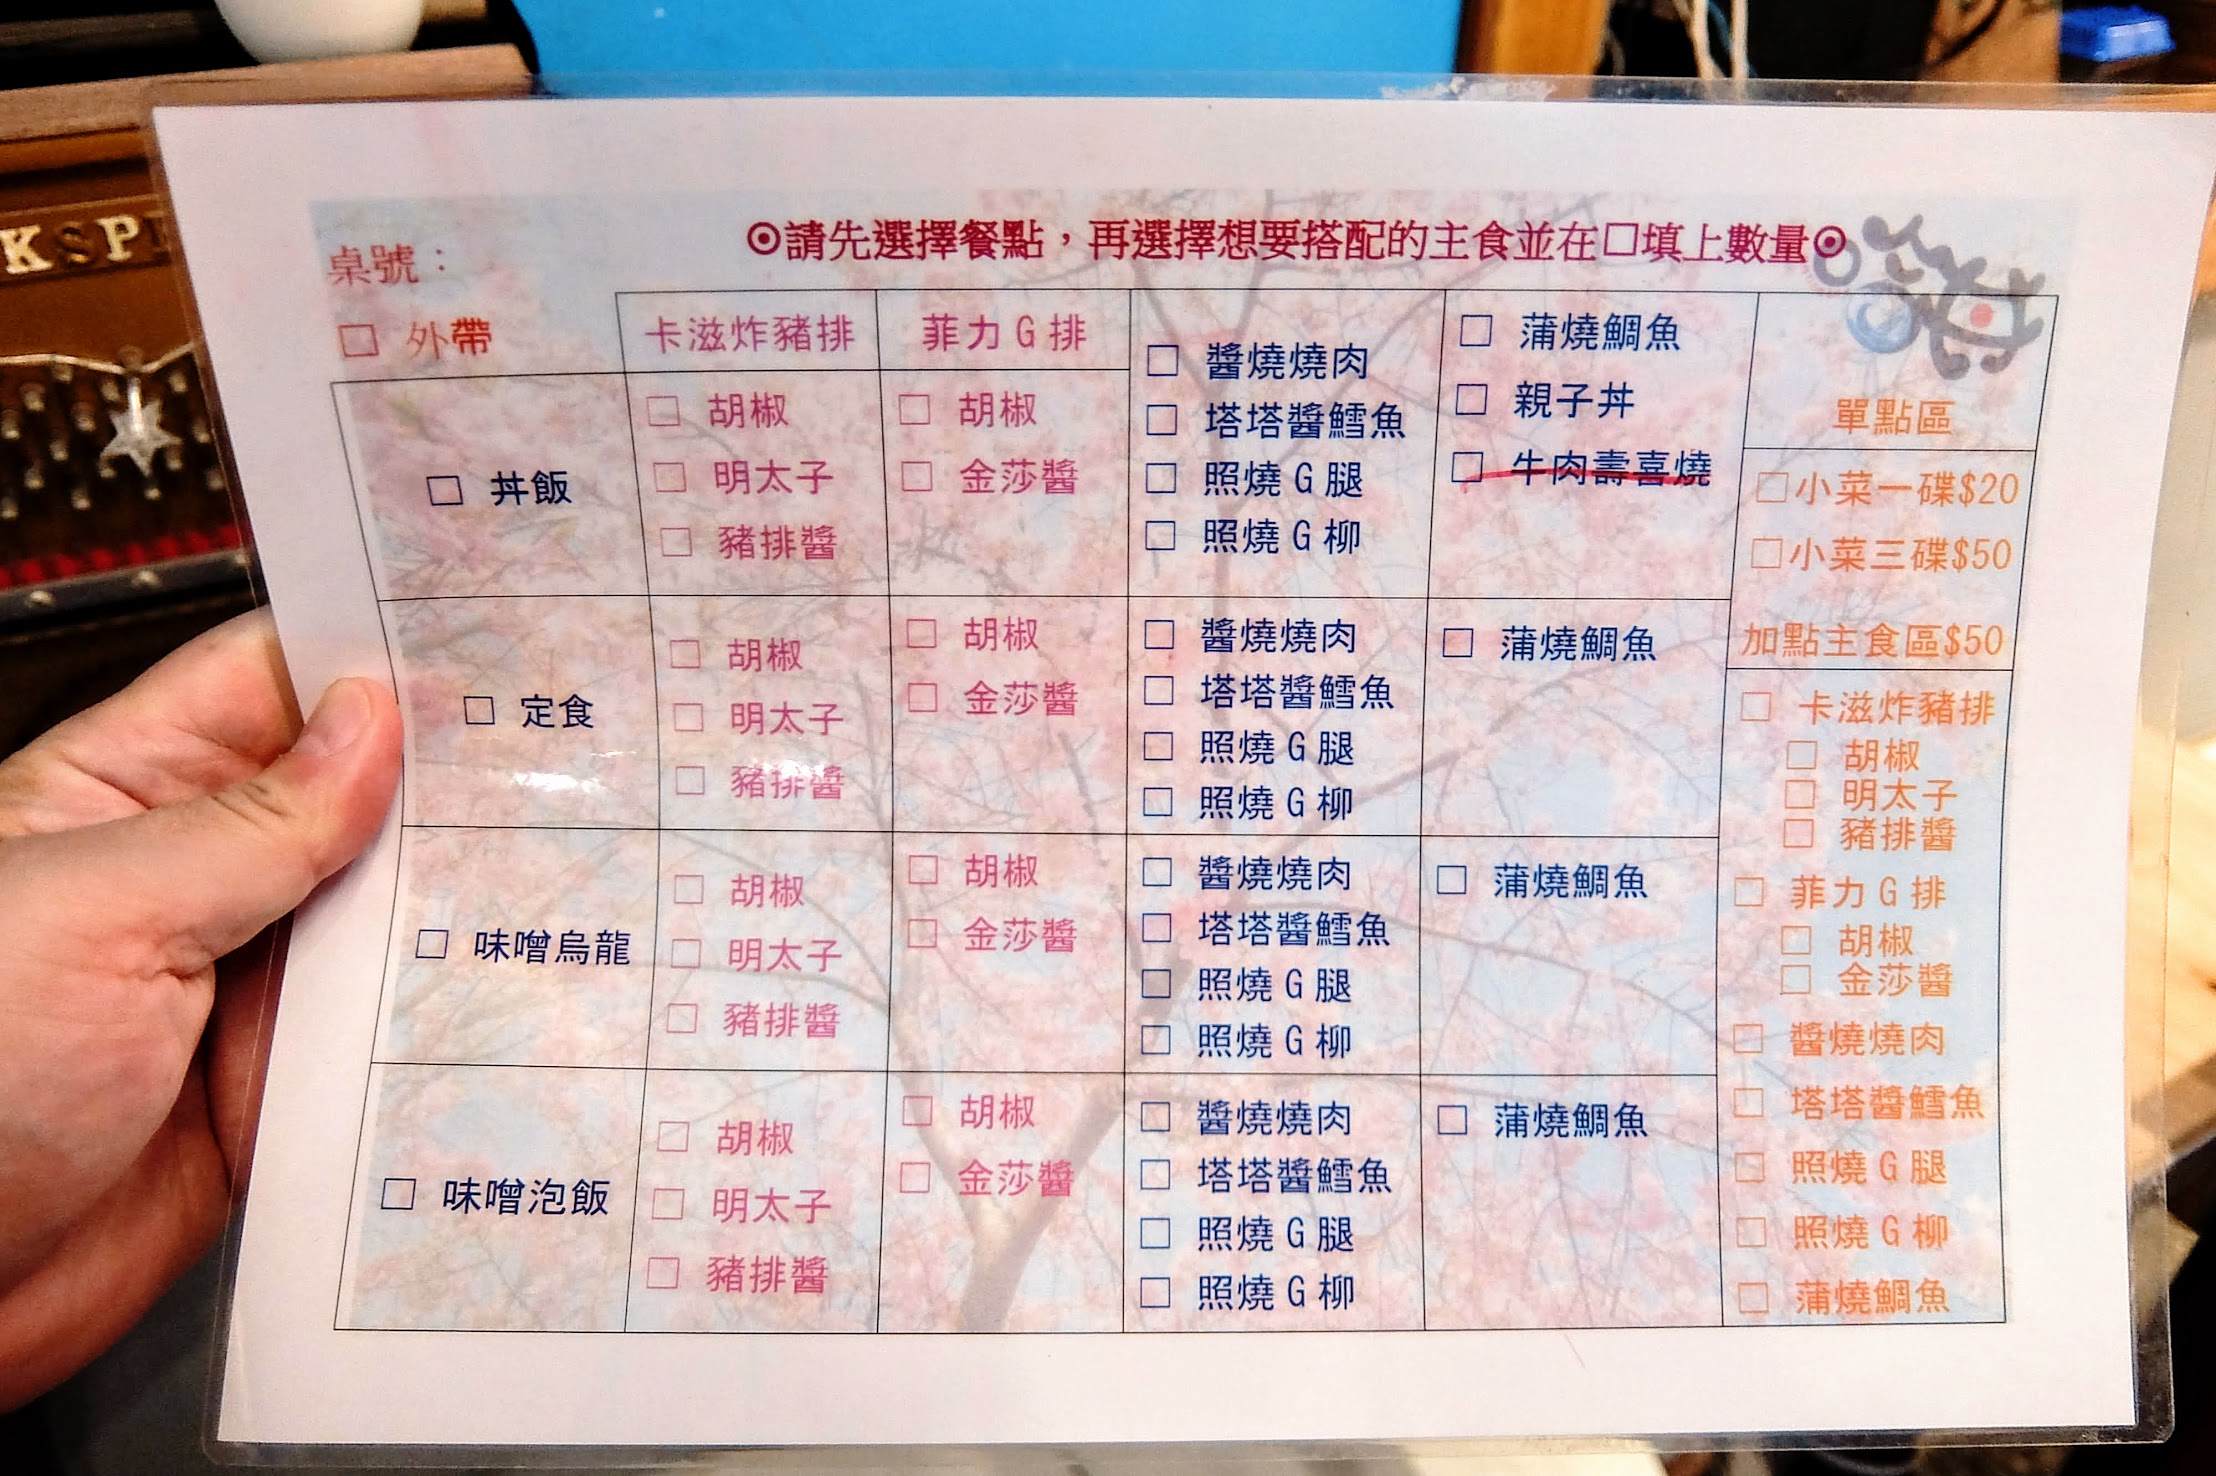 桌號：
◎請先選擇餐點，再選擇想要搭配的主食並在□填上數量◎
□ 外帶
卡滋炸豬排
菲力G排
□ 丼飯
□ 胡椒
□ 明太子
□ 豬排醬
□ 胡椒
□ 金莎醬
□ 醬燒燒肉
□ 塔塔醬鱈魚
□ 照燒G腿
□ 照燒G柳
□ 蒲燒鯛魚
□ 親子丼
□ 牛肉壽喜燒
□ 定食
□ 胡椒
□ 明太子
□ 豬排醬
□ 胡椒
□ 金莎醬
□ 醬燒燒肉
□ 塔塔醬鱈魚
□ 照燒G腿
□ 照燒G柳
□ 蒲燒鯛魚
□ 味噌烏龍
□ 胡椒
□ 明太子
□ 豬排醬
□ 胡椒
□ 金莎醬
□ 醬燒燒肉
□ 塔塔醬鱈魚
□ 照燒G腿
□ 照燒G柳
□ 蒲燒鯛魚
□ 味噌泡飯
□ 胡椒
□ 明太子
□ 豬排醬
□ 胡椒
□ 金莎醬
□ 醬燒燒肉
□ 塔塔醬鱈魚
□ 照燒G腿
□ 照燒G柳
□ 蒲燒鯛魚
單點區
□小菜一碟$20
□小菜三碟$50
加點主食區$50
□ 卡滋炸豬排
□ 胡椒
□ 明太子
□ 豬排醬
□ 菲力G排
□ 胡椒
□ 金莎醬
□ 醬燒燒肉
□ 塔塔醬鱈魚
□ 照燒G腿
□ 照燒G柳
□ 蒲燒鯛魚